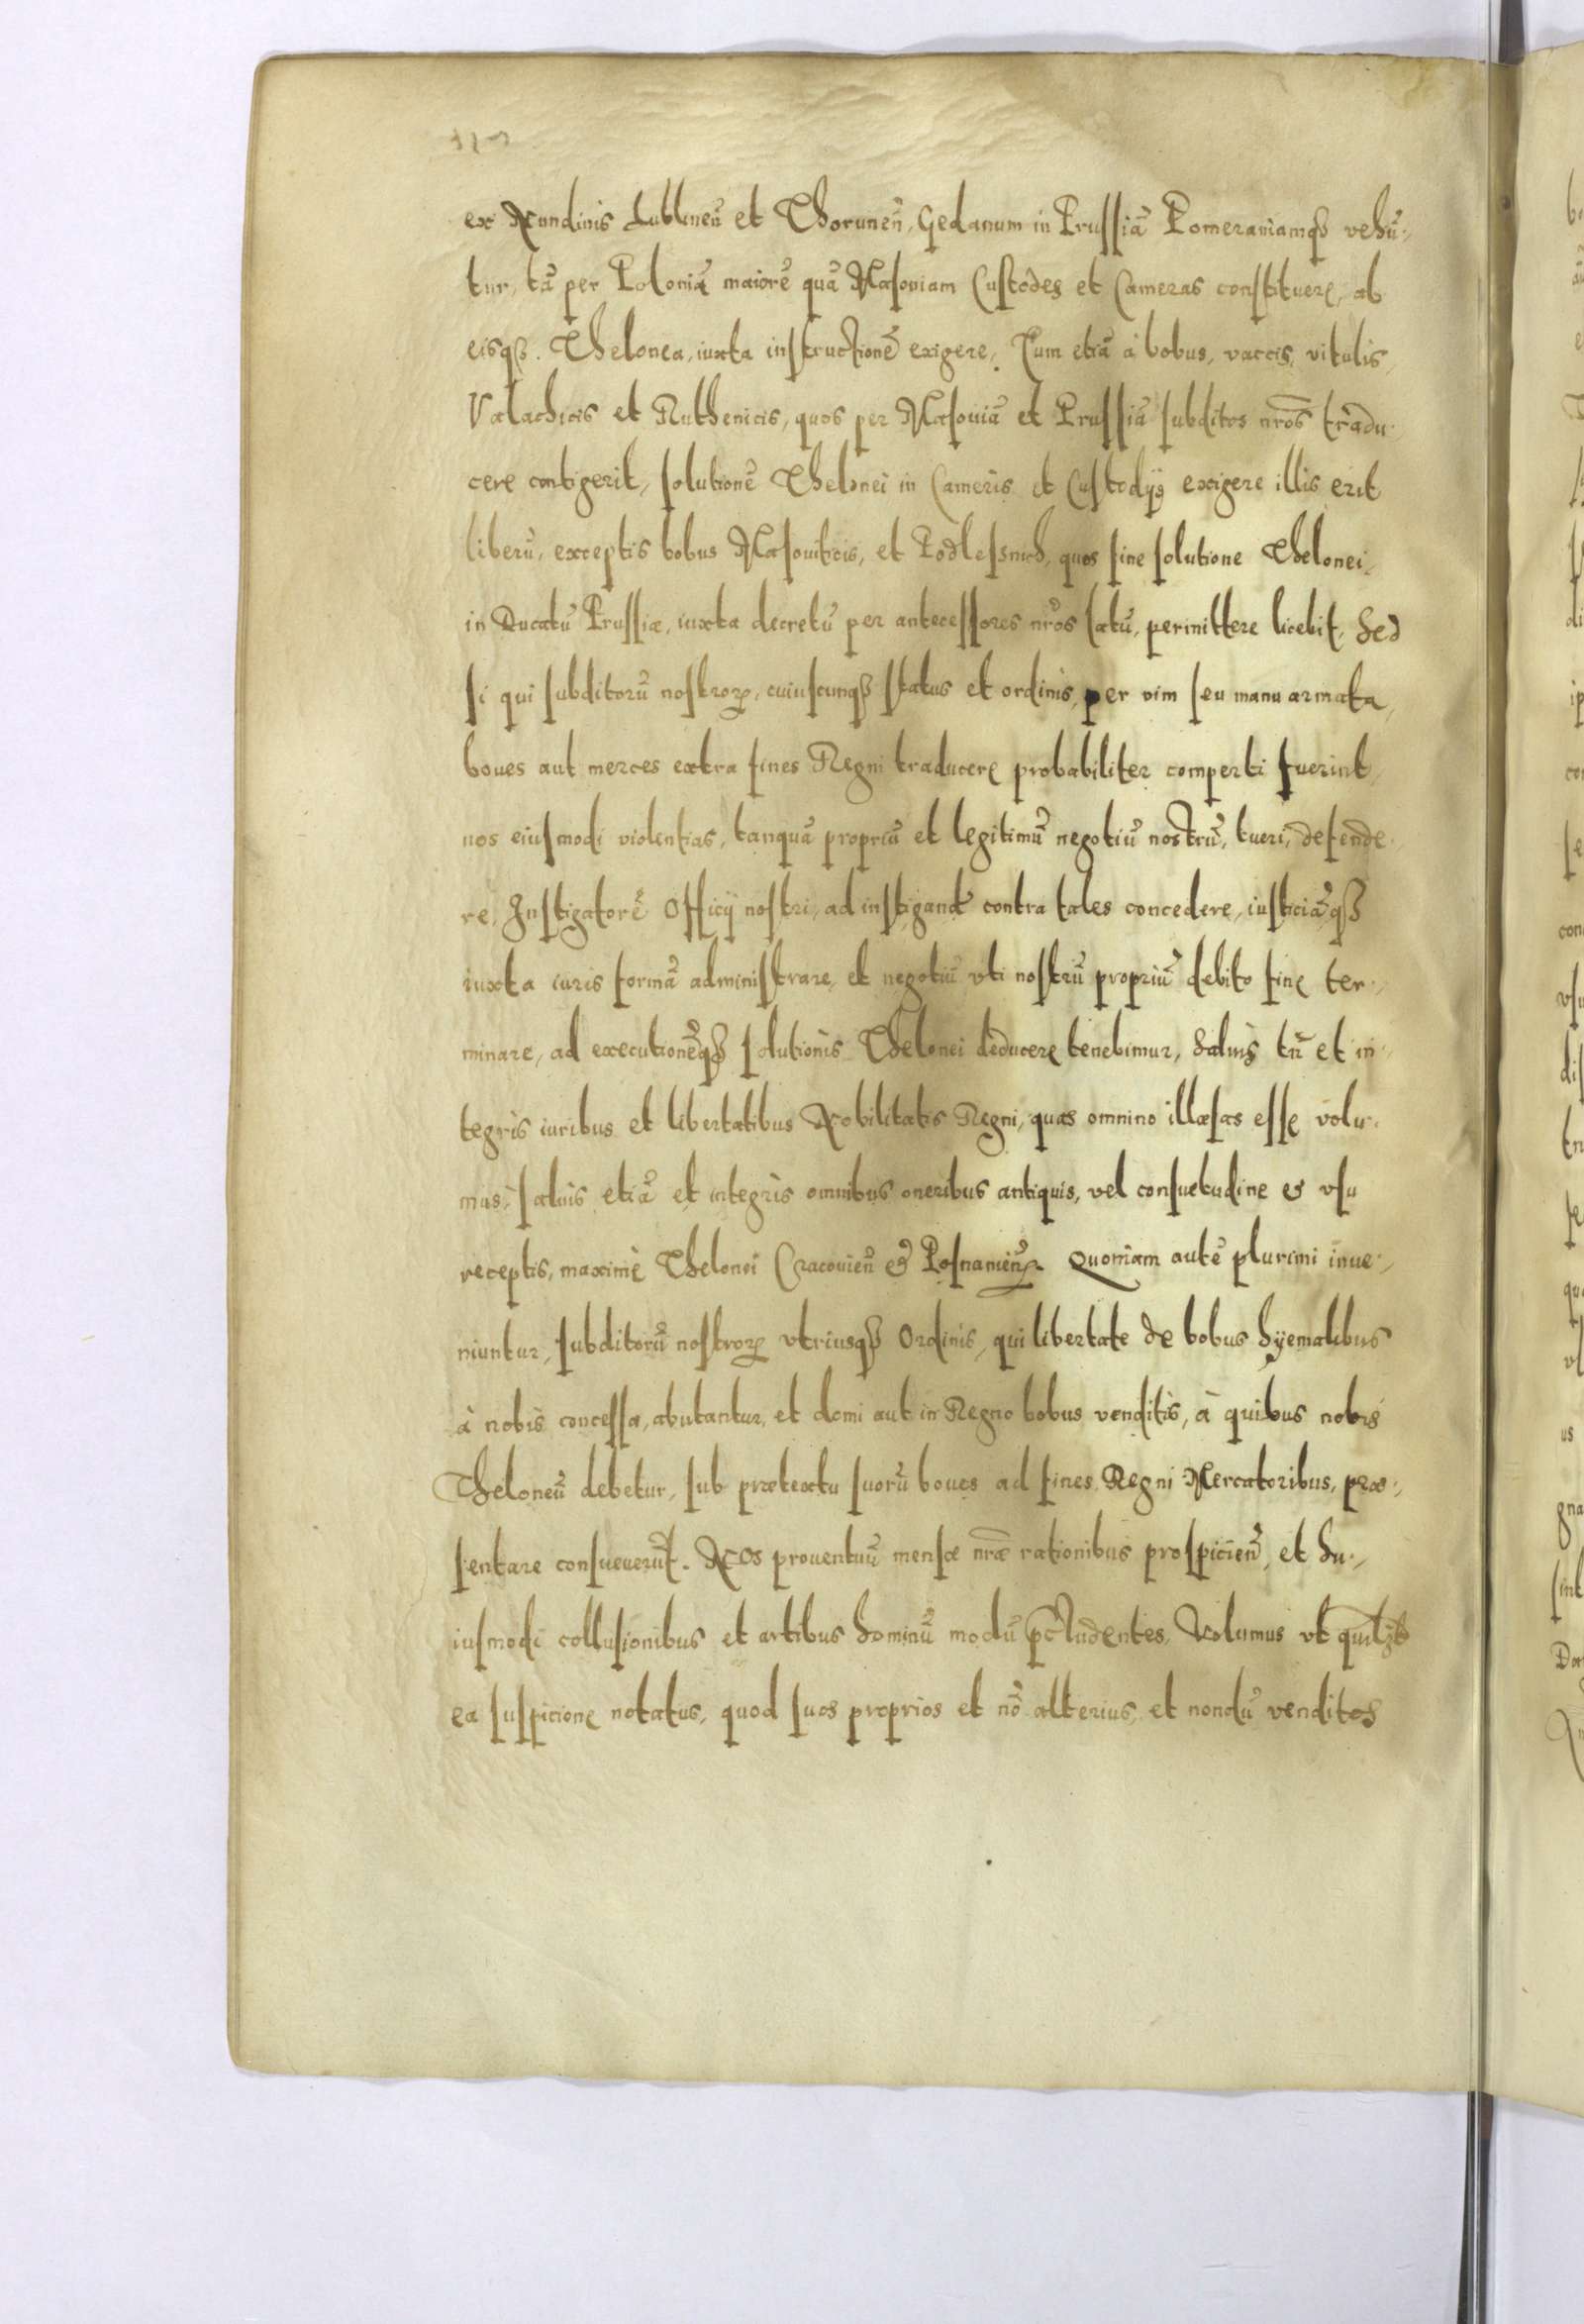 ex Nundinis Lublineñ et Thoruneñ, Gedanum in Prussiã Pomeraniamqȝ vehũ⸗
tur, tã per Poloniã maiorẽ quã Masouiam Custodes et Cameras constituere, ab
eisqȝ. Thelonea, iuxta instructionẽ exigere, Tum etiã à bobus, vaccis, vitulis,
Valachicis et Ruthenicis, quos per Masouiã et Prussiã subditos nr̃os tradu⸗
cere contigerit, solutionẽ Thelonei in Cameris et Custodijs exigere illis erit
liberũ, exceptis bobus Masouiticis, et quos sine solutione Thelonei,
in Ducatũ Prussiæ, iuxta decretũ per antecessores nr̃os latũ, permittere licebit, Sed
si qui subditorũ nostroꝝ, cuiuscunqȝ status et ordinis, per vim seu manu armata,
boues aut merces extra fines Regni traducere probabiliter comperti fuerint,
nos eiusmodi violentias, tanquã propriũ et legitimũ negotiũ nostrũ, tueri, defende⸗
re, Instigatorẽ Officij nostri, ad instigand contra tales concedere, iusticiãqȝ
iuxta iuris formã administrare, et negotiũ vti nostrũ propriũ debito fine ter⸗
minare, ad executionẽqȝ solutionis Thelonei deducere tenebimur, saluis tñ et in⸗
tegris iuribus et libertatibus Nobilitatis Regni, quas omnino illæsas esse volu⸗
mus, saluis etiã et integris omnibus oneribus antiquis, vel consuetudine & vsu
receptis, maximè Thelonei Cracouieñ & Posnanieñ. Quoniam autẽ plurimi inue⸗
niuntur, subditorũ nostroꝝ vtriusqȝ Ordinis, qui libertate de bobus hyemalibus
à nobis concessa, abutantur, et domi aut in Regno bobus venditis, à quibus nobis
Theloneũ debetur, sub prætextu suorũ boues ad fines Regni Mercatoribus, præ⸗
sentare consueuerũt. Nos prouentuũ mensæ nr̃æ rationibus prospicieñ, et hu⸗
iusmodi collusionibus et artibus hominũ modũ pcludentes, Volumus vt quilȝt
ea suspicione notatus, quod suos proprios et nõ alterius, et nondũ venditos